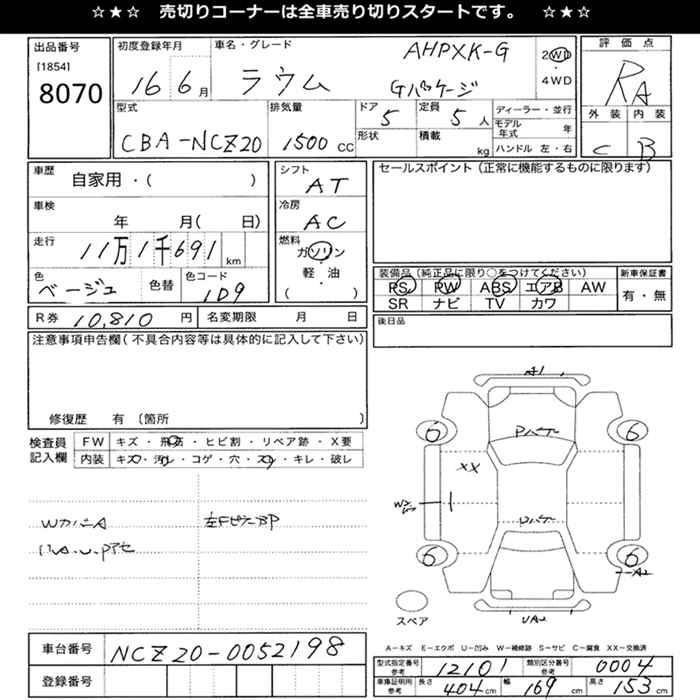 ☆★☆ 売切りコーナーは全車売り切りスタートです。 ☆★☆
出品番号
[1854]
8070
初度登録年月
16 6月
車名・グレード
ラウム
AHPXK-G
Gパッケージ
2WD
・
4WD
評価点
RA
外装 内装
C B
型式
CBA-NCZ20
排気量
1500 CC
ドア
5
形状
定員
5 人
積載
kg
ディーラー・並行
モデル年式 年
ハンドル 左・右
車歴
自家用・( )
車検
年 月( 日)
走行
11万1千691 km
色
ベージュ
色替
色コード
1D9
シフト
AT
冷房
AC
燃料
ガソリン
・
軽・油
( )
セールスポイント(正常に機能するものに限ります)
装備品(純正品に限り○をつけてください)
PS PW ABS エアB AW
SR ナビ TV カワ
新車保証書
有・無
R券 10,810 円
名変期限 月 日
後日品
注意事項申告欄(不具合内容等は具体的に記入して下さい)
修復歴 有〔箇所 〕
検査員
記入欄
FW キズ・飛石・ヒビ割・リペア跡・X要
内装 キズ・汚れ・コゲ・穴・スレ・キレ・破レ
WカバーA
左FピラーBP
A1
Pパネ
6 6
XX
6 6
A2
UA2
スペア
A-キズ E-エクボ U-凹み W-補修跡 S-サビ C-腐食 XX-交換済
車台番号 NCZ20-0052198
登録番号
型式指定番号 参考 12101
類別区分番号 参考 0004
車庫証明用 参考 長さ 404 cm 幅 169 cm 高さ 153 cm